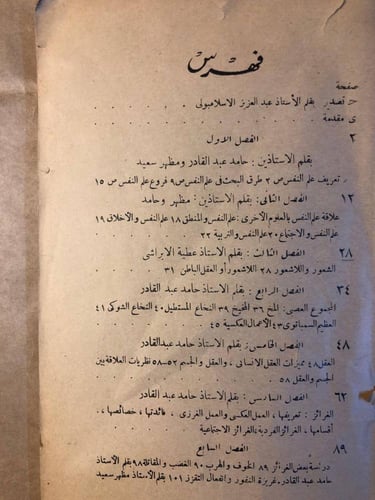 فهرس
صفحة
ح تصدير بقلم الأستاذ عبد العزيز الاسلامبولى
ى مقدمة
٢ الفصل الاول
بقلم الاستاذين : حامد عبد القادر ومظهر سعيد
تعريف علم النفس ص ٢ طرق البحث فى علم النفس ص ٩ فروع علم النفس ص ١٥
١٢ الفصل الثانى : بقلم الاستاذين : مظهر وحامد
علاقة علم النفس بالعلوم الأخرى : علم النفس والمنطق ١٨ علم النفس والأخلاق ١٩
علم النفس والاجتماع ٢٠ علم النفس والتربية ٢٢
٢٨ الفصل الثالث : بقلم الاستاذ عطية الابراشى
الشعور واللاشعور ٢٨ اللاشعور أو العقل الباطن ٣١
٣٤ الفصل الرابع : بقلم الاستاذ حامد عبد القادر
المجموع العصبى : المخ ٣٦ المخيخ ٣٩ النخاع المستطيل ٤٠ النخاع الشوكى ٤١
العظيم السمبتاوى ٤٣ الأعمال العكسية ٤٥
٤٨ الفصل الخامس : بقلم الاستاذ حامد عبد القادر
العقل ٤٨ مميزات العقل الانسانى ، والعقل والجسم ٥٢ – ٥٨ نظريات العلاقة بين
الجسم والعقل ٥٨
٦٢ الفصل السادس : بقلم الاستاذ حامد عبد القادر
الغرائز : تعريفها ، العمل العكسى والعمل الغرزى ، فائدتها ، خصائصها ،
أقسامها ، الغرائز الفردية ، الغرائز الاجتماعية
٨٩ الفصل السابع
دراسة بعض الغرائز ٨٩ الخوف والهرب ٩٠ الغضب والمقاتلة ٩٨ بقلم الأستاذ
حامد عبد القادر . غريزة النفور وانفعال التقزز ١٠١ بقلم الاستاذ مظهر سعيد